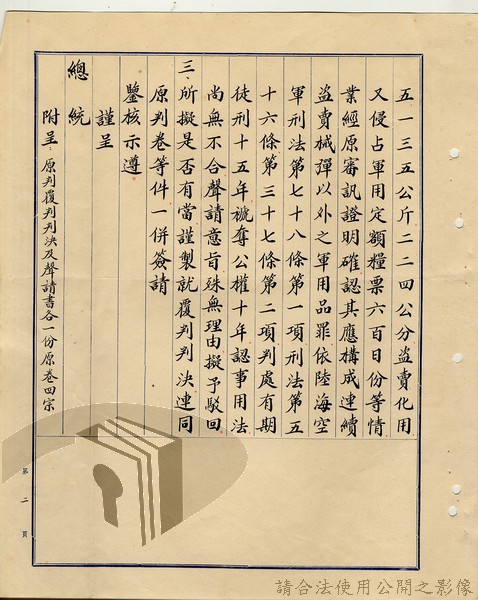 五一三五公斤二二四公分盜賣化用
又侵占軍用定額糧票六百日份等情
業經原審訊證明確認其應構成連續
盜賣械彈以外之軍用品罪依陸海空
軍刑法第七十八條第一項刑法第五
十六條第三十七條第二項判處有期
徒刑十五年褫奪公權十年認事用法
尚無不合聲請意旨殊無理由擬予駁回
三、所擬是否有當謹製就覆判判決連同
原判卷等件一併簽請
鑒核示遵
謹呈
總統
附呈:原判覆判判決及聲請書各一份原卷四宗
第二頁
請合法使用公開之影像